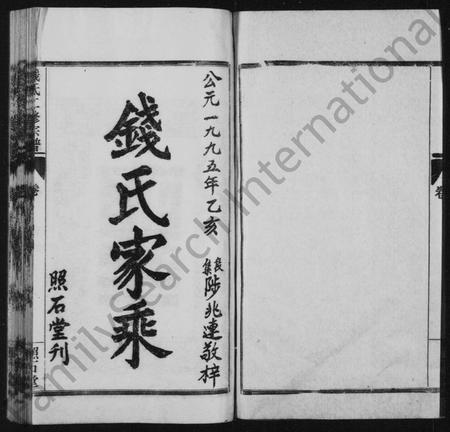 公元一九九五年乙亥
長集 陟兆連敬梓
錢氏家乘
照石堂刊
錢氏七修宗譜
卷
照石堂
卷
FamilySearch International